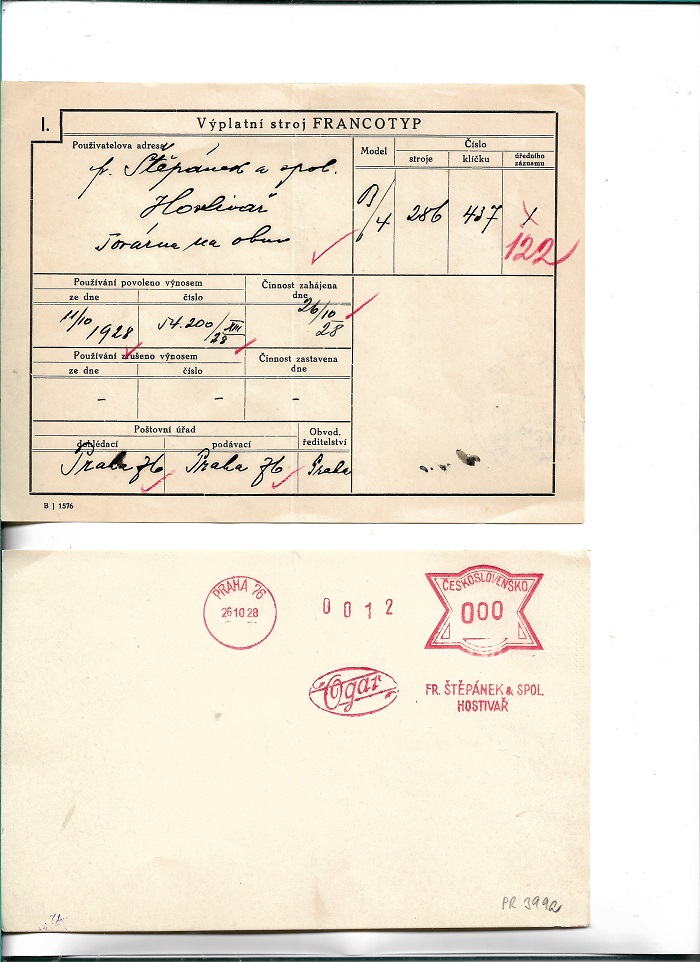 I.
Výplatní stroj FRANCOTYP
Používatelova adresa
f. Štěpánek a spol.
Hostivař
Továrna na obuv
Model
Číslo
stroje
klíčku
úředního záznamu
B/4
286
437
122
Používání povoleno výnosem
ze dne
číslo
11/10 1928
54.200/XIII 28
Činnost zahájena
dne
26/10 28
Používání zrušeno výnosem
ze dne
číslo
Činnost zastavena
dne
–
–
–
Poštovní úřad
dohlédací
podávací
Obvod. ředitelství
Praha 76
Praha 76
Praha
B] 1576
PRAHA 76
26 10 28
0 0 1 2
ČESKOSLOVENSKO
000
Ogar
FR. ŠTĚPÁNEK & SPOL.
HOSTIVAŘ
PR 3992